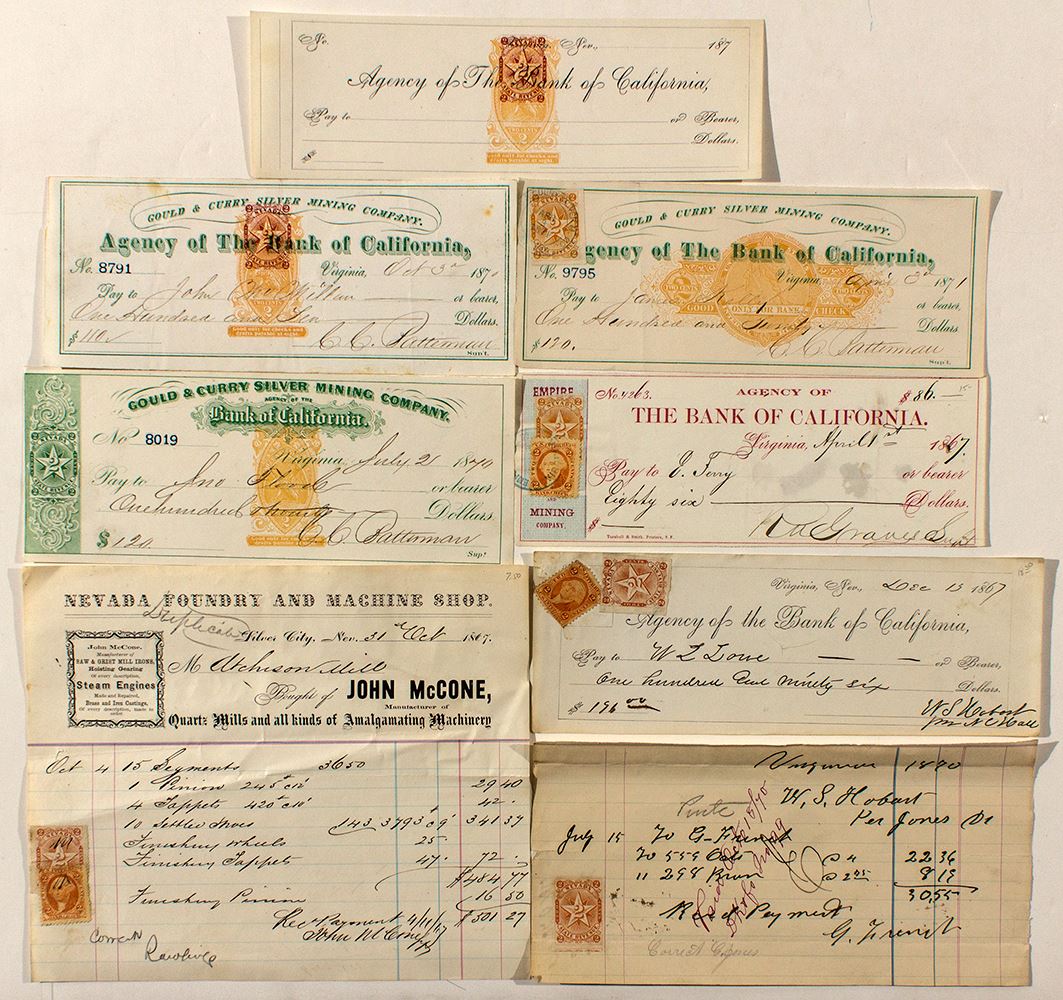 No. Nev., 187
Agency of The Bank of California,
Pay to or Bearer,
Dollars.
$
TWO CENTS
2
Good only for checks and
drafts payable at sight.
GOULD & CURRY SILVER MINING COMPANY.
Agency of The Bank of California,
No. 8791 Virginia, Oct 3d 1870
Pay to John or bearer,
One Hundred and Ten Dollars.
$110. C. C. Batterman
Sup't.
NEVADA
TWO CENTS
2
Good only for checks and
drafts payable at sight.
GOULD & CURRY SILVER MINING COMPANY.
Agency of The Bank of California,
No. 9795 Virginia, 3d 1871
Pay to James or bearer,
One Hundred and Twenty Dollars.
$120. C. C. Batterman
Sup't.
TWO CENTS
GOOD ONLY FOR BANK CHECK
GOULD & CURRY SILVER MINING COMPANY.
AGENCY OF THE
Bank of California.
No 8019 Virginia, July 2 1870
Pay to Jno Flood or bearer
One hundred & twenty Dollars.
$120. C. C. Batterman
Sup't
EMPIRE
MILL
AND
MINING
COMPANY.
No. 4263. AGENCY OF $86.
15-
THE BANK OF CALIFORNIA.
Virginia, April 1st 1867.
Pay to E. Terry or bearer
Eighty six Dollars.
Graves Supt
Turnbull & Smith, Printers, S.F.
18.50
Virginia, Nev., Dec 13 1867
Agency of the Bank of California,
Pay to W L Lowe or Bearer,
One hundred and ninety six Dollars.
$196.00 W S Hobart
7.50
NEVADA FOUNDRY AND MACHINE SHOP.
Duplicate
Silver City, Nev. 31st Oct 1867.
M Atchison Mill
Bought of JOHN McCONE,
Manufacturer of
Quartz Mills and all kinds of Amalgamating Machinery
John McCone.
Manufacturer of
SAW & GRIST MILL IRONS,
Hoisting Gearing
Of every description,
Steam Engines
Made and Repaired,
Brass and Iron Castings,
Of every description, made to
order
Oct 4 15 Segments 3650
1 Pinion 245 # c12' 29 40
4 Tappets 420 # c10' 42 .
10 Settler Shoes 143 3793 # c9' 341 37
Finishing Wheels 25 .
Finishing Tappets 47 . 72 .
$484 77
Finishing Pinion 16 50
$501 27
Rec Payment 4/11/67
John McCone
Correct
Rawling
Virginia 1870
W. S. Hobart
Per Jones Dr
July 15 To G. French
To 559 @ 4 22 36
" 298 Bran @ 2 3/4 8 19
30 55
Rec Payment
G. French
Correct C Jones